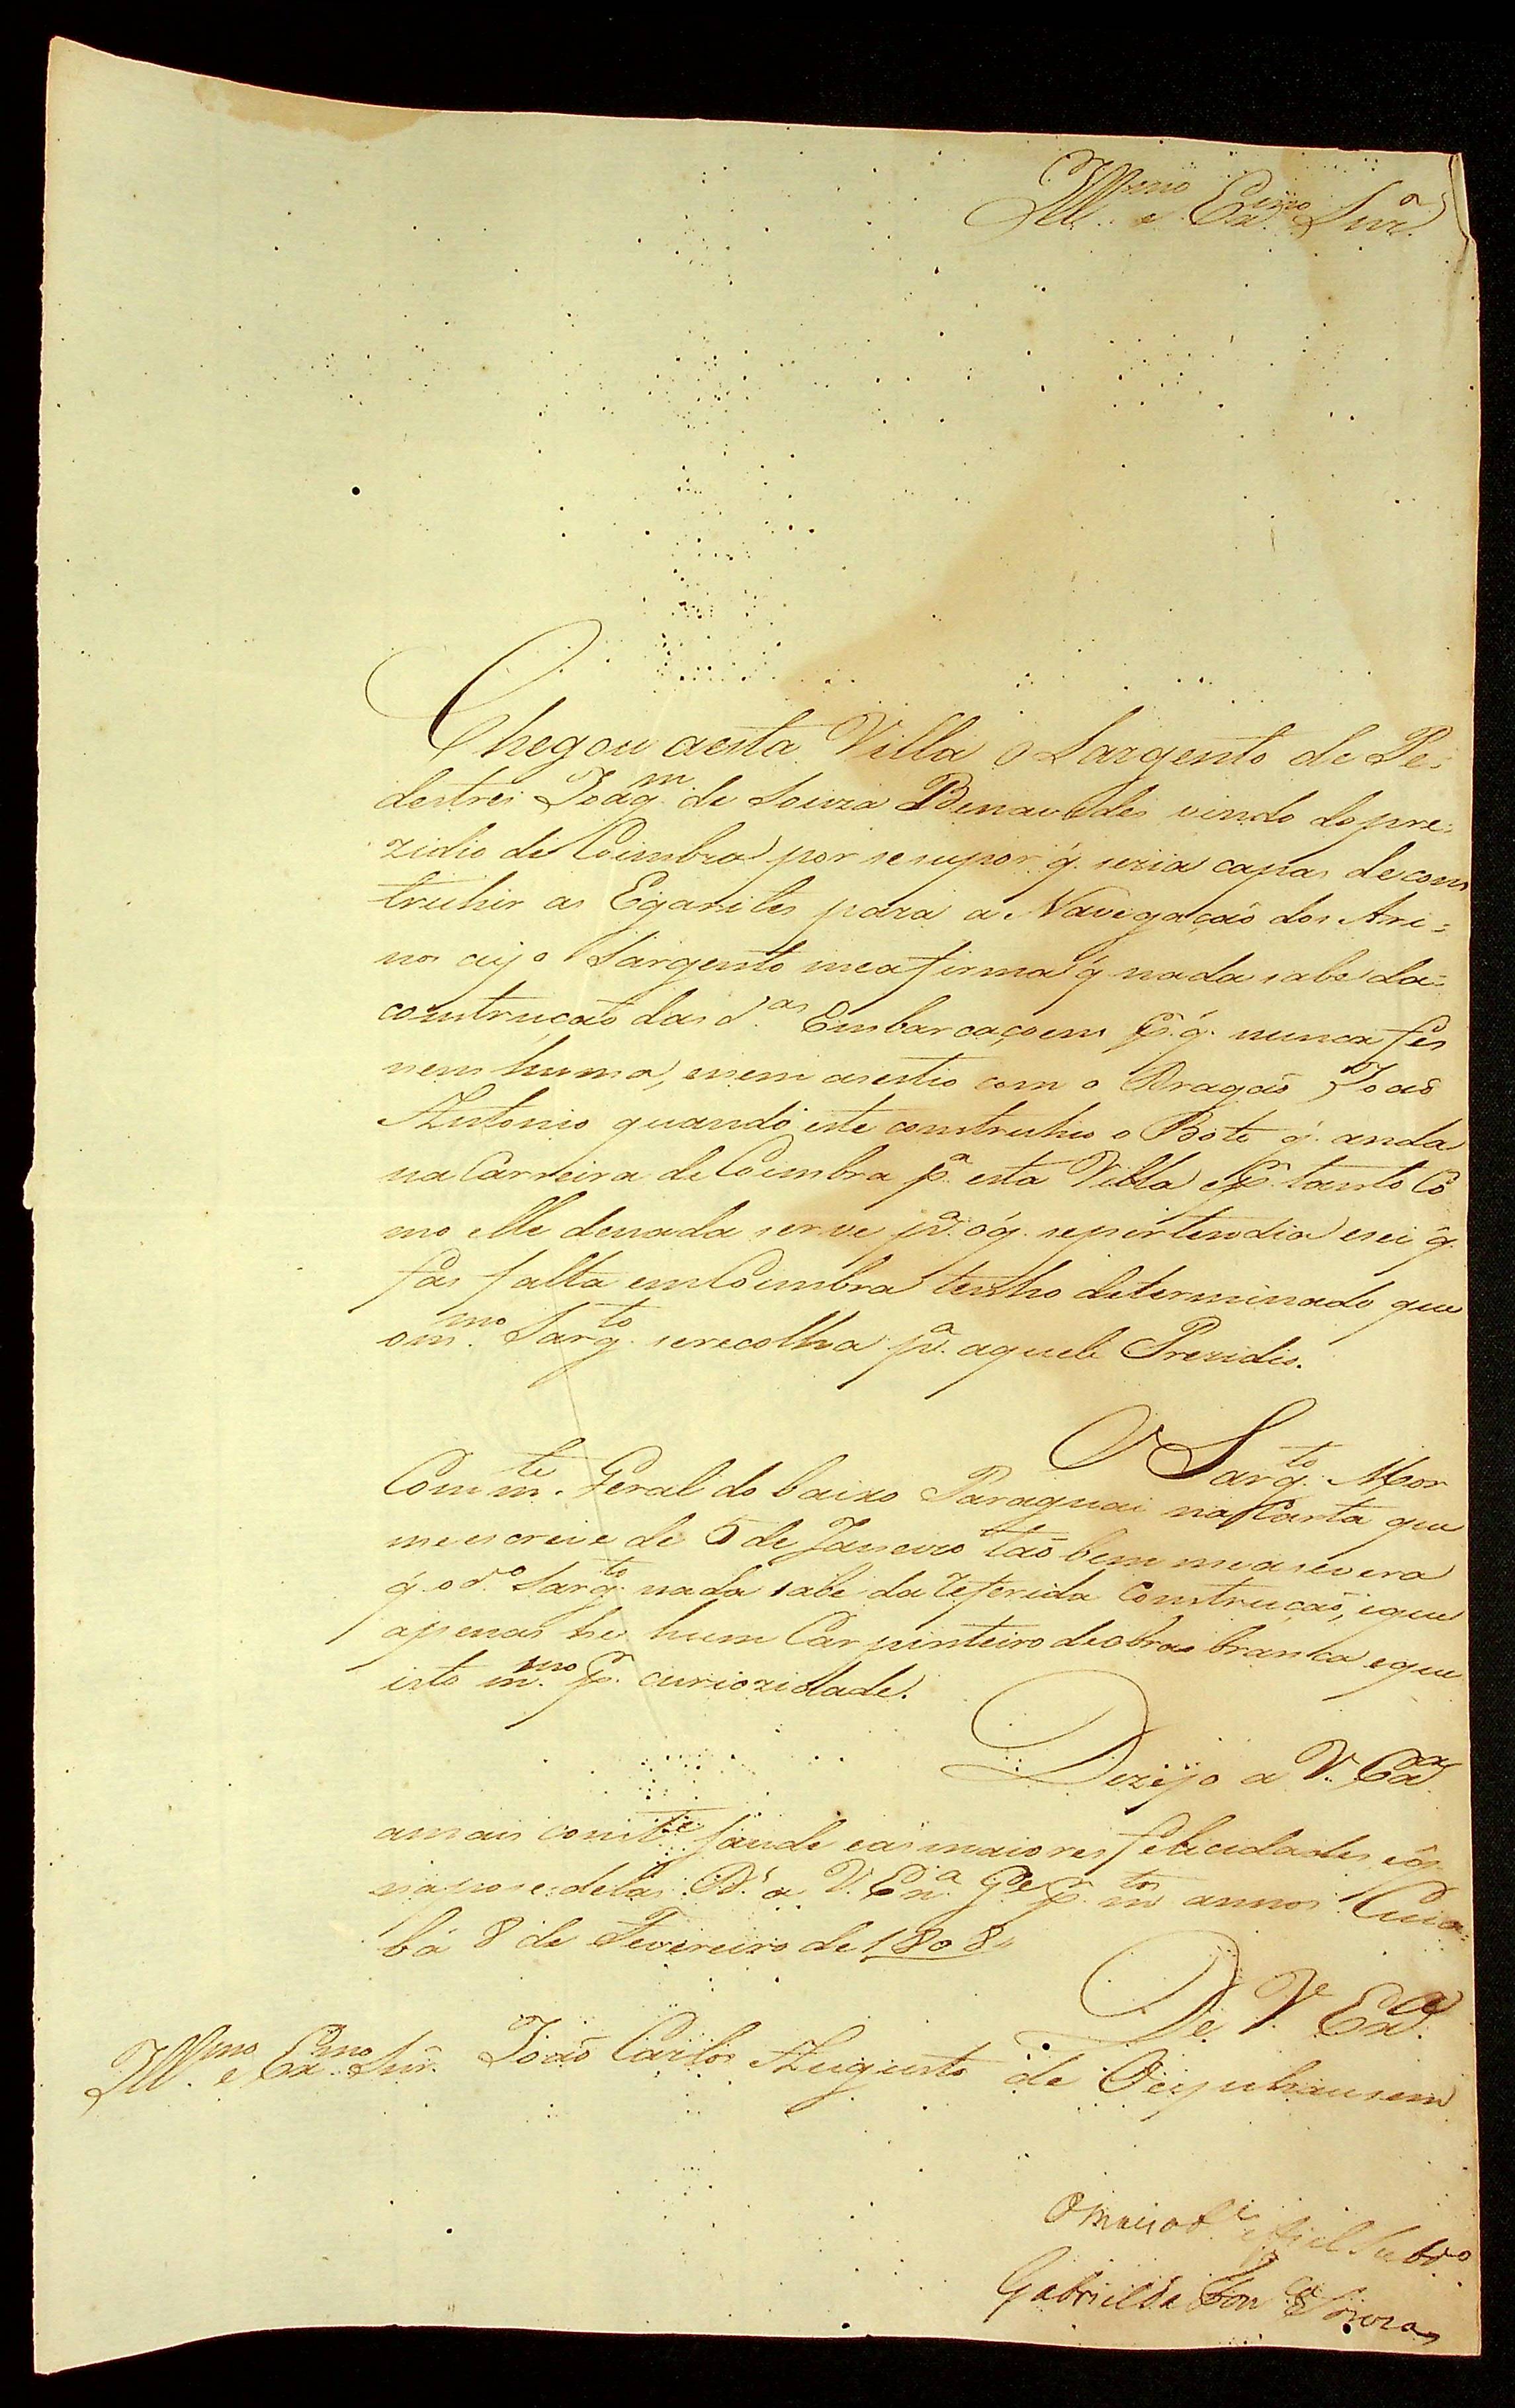 Ill.mo e Ex.mo Snr.
Chegou aesta Villa o Sargento de Pe=
destres Joaq.m de Souza Benavides vindo do pre=
zidio de Coimbra por sesupor q̃. seria capas de cons
truhir as Egarites para a Navegação dos Ari=
nos cujo Sargento meafirma q̃ nada sabe da=
construcaõ das d.as Embarcaçoens p.r q̃. nunca fes
nem huma, enem asestio com o Dragaõ Joaõ
Antonio quando este construhio o Bote q̃. anda
na Carreira de Coimbra p.a esta Villa e p.r tanto Co
mo elle denada serve p.a o q̃. sepertendia esei q̃.
fas falta em Coimbra tenho determinado que
o m.mo Sarg.to serecolha p.a aquele Prezidio.
O Sarg.to Mor
Comm.te Geral do baixo Paraguai na Carta que
me escreve de 5 de Janeiro taõ bem measevera
q̃. o d.o Sarg.to nada sabe da referida Construcaõ, eque
apenas he hum Carpinteiro deobra branca eque
isto m.mo p.r curiozidade.
Dezejo a V. Ex.a
amais const.e saude eas maiores felicidades e
napose delas D.s a V. Ex.a G.e p.r m.tos annos. Cuia=
bá 8 de Fevereiro de 1808
De V. Ex.a
Ill.mo e Ex.mo Snr. Joaõ Carlos Augusto de Oeynhausem
Omais ob.e efiel Subd.o
Gabriel da Fon.ca Souza